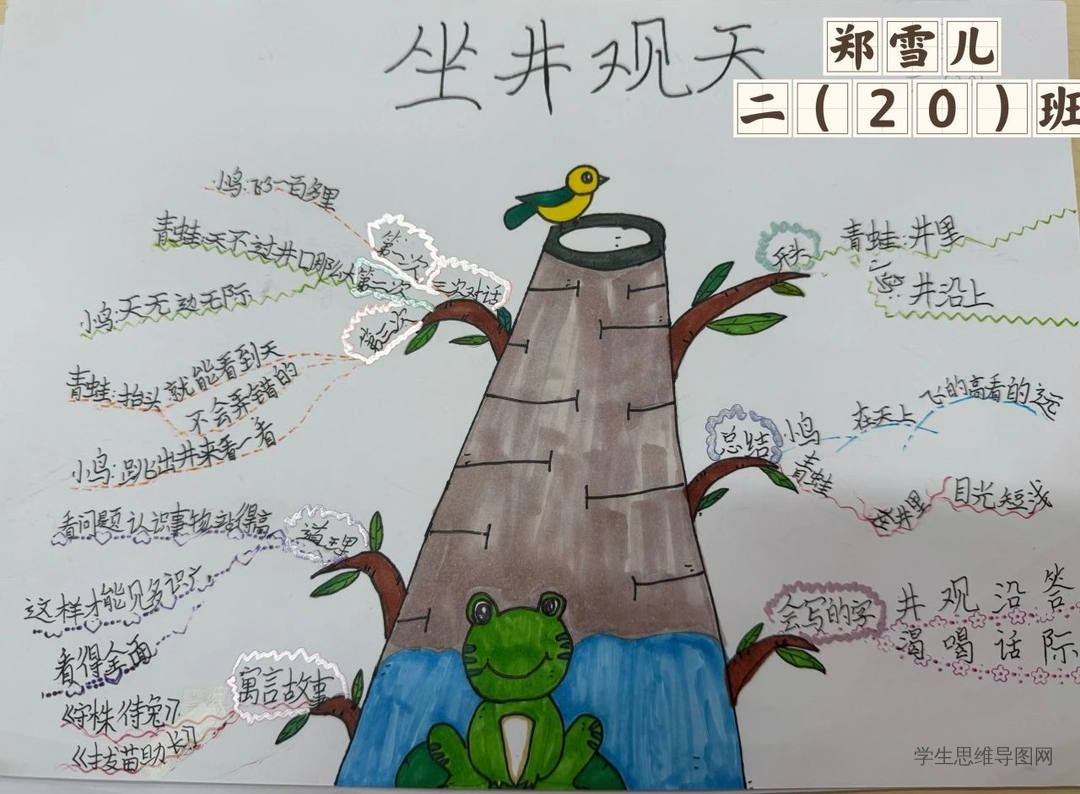 坐井观天
郑雪儿
二(20)班
小鸟:飞了一百多里
第一次
青蛙:天不过井口那么大
第二次
三次对话
小鸟:天无边无际
第三次
青蛙:抬头就能看到天
不会弄错的
小鸟:跳出井来看一看
道理
看问题认识事物站得高
这样才能见多识广
看得全面
寓言故事
《守株待兔》
《拔苗助长》
开头
青蛙:井里
小鸟:井沿上
总结
小鸟
在天上
飞的高看的远
青蛙
在井里
目光短浅
会写的字
井观沿答
渴喝话际
学生思维导图网